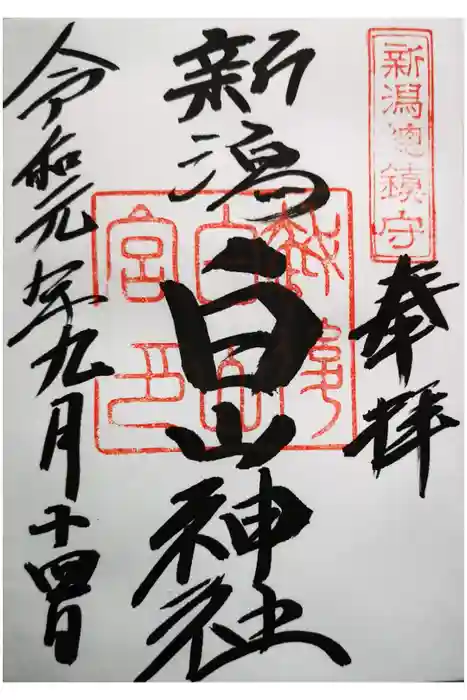 新潟總鎮守
奉拝
新潟白山神社
白山
宮印
令和元年九月十四日